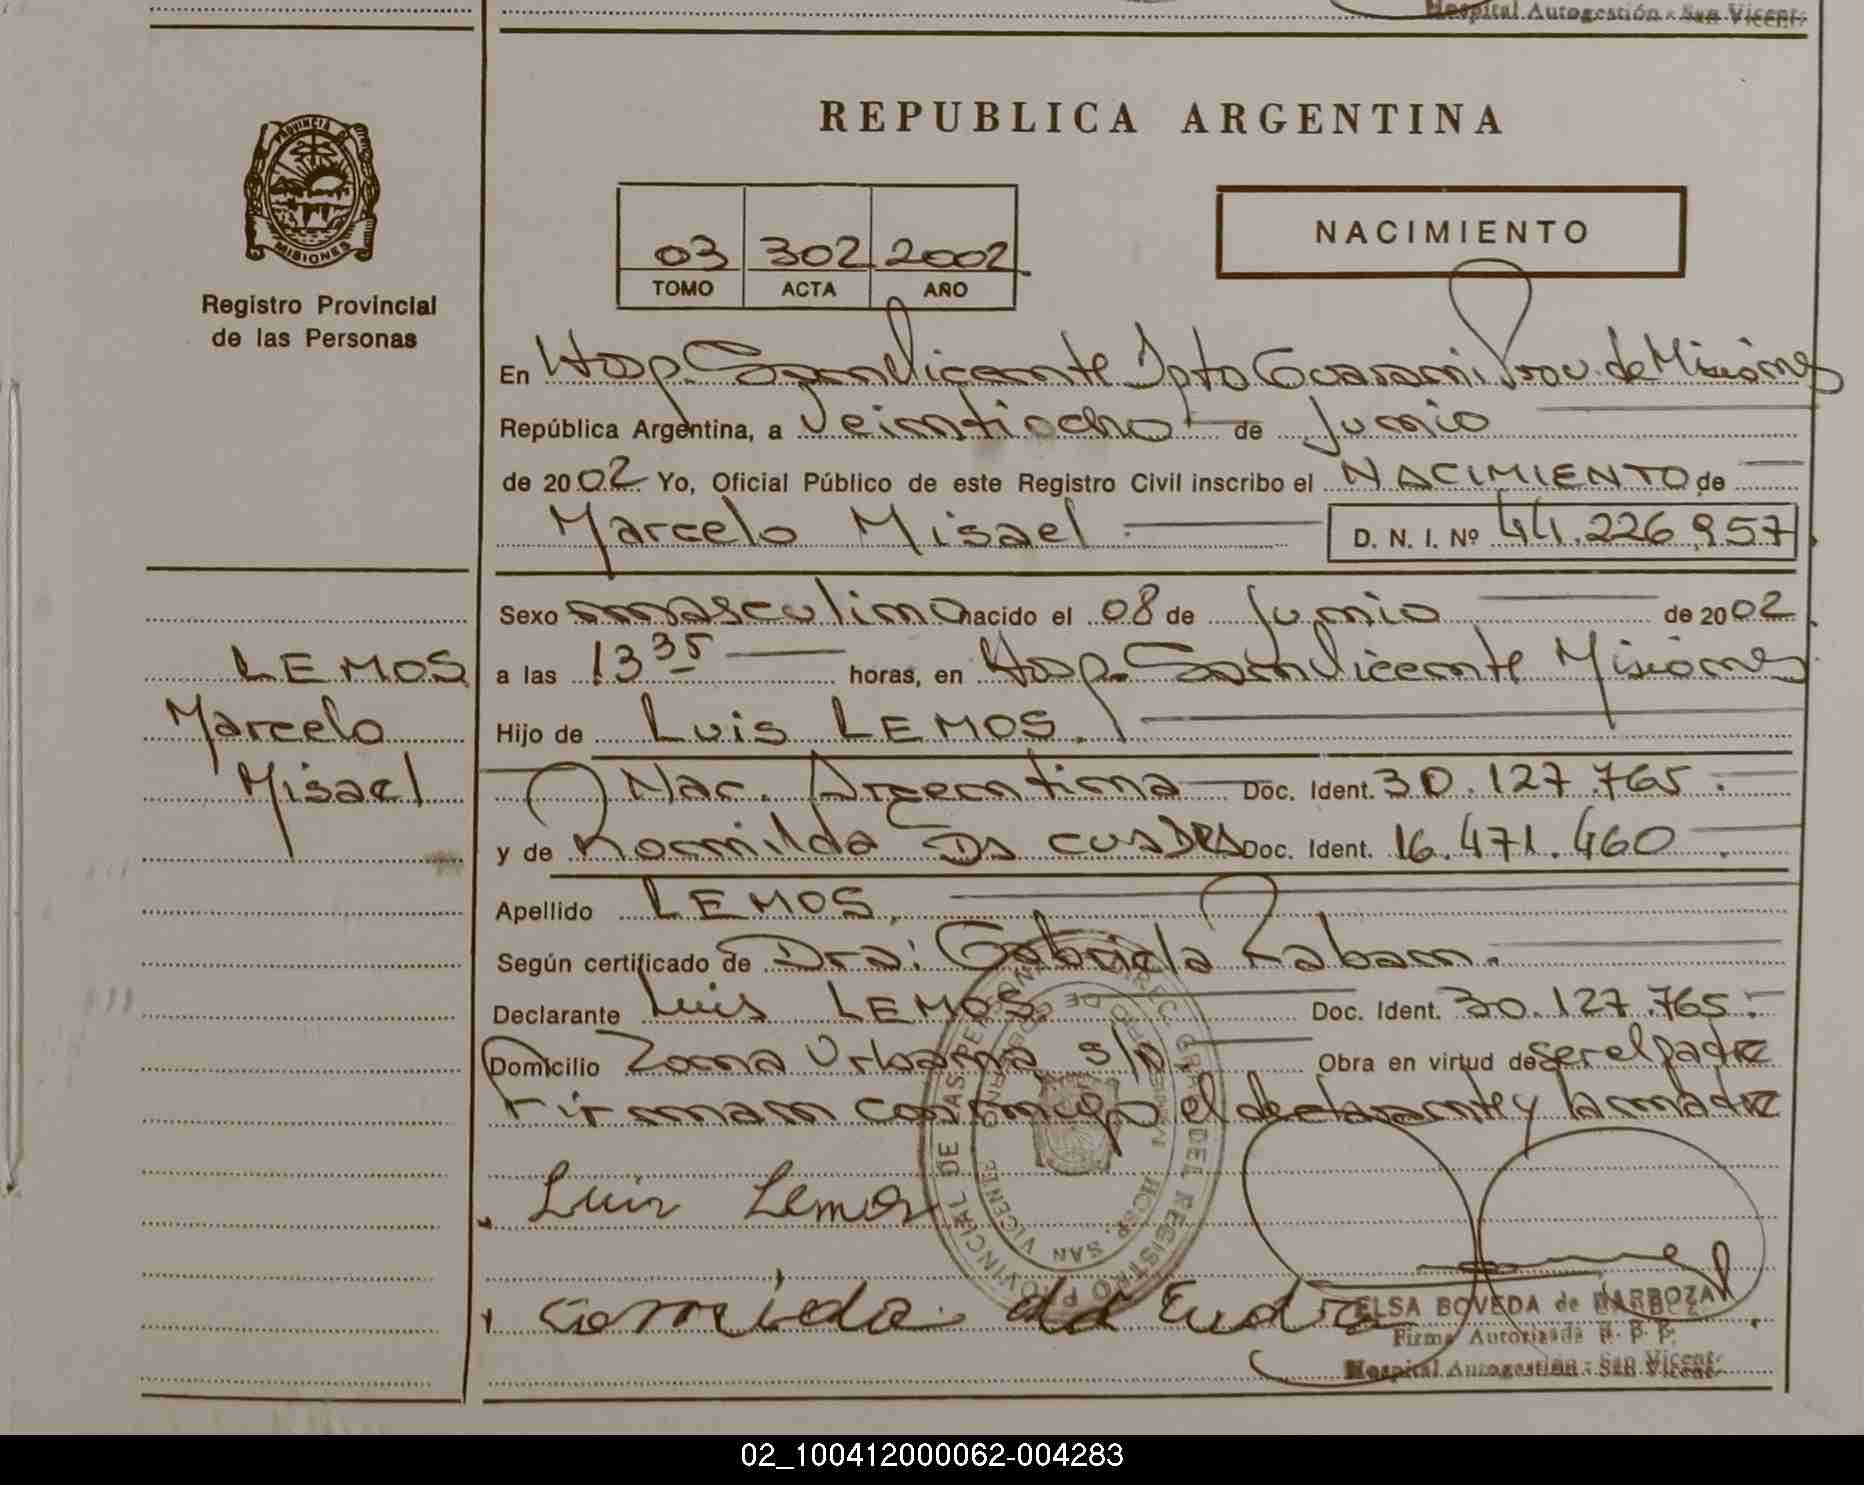 Hospital Autogestión - San Vicente
PROVINCIA DE
MISIONES
Registro Provincial
de las Personas
REPUBLICA ARGENTINA
NACIMIENTO
03 302 2002
TOMO ACTA AÑO
En Hosp. San Vicente Dpto Guarani Prov. de Misiones
República Argentina, a Veintiocho de Junio
de 2002 Yo, Oficial Público de este Registro Civil inscribo el NACIMIENTO de
Marcelo Misael D. N. I. Nº 44.226.957
Sexo masculino nacido el 08 de Junio de 2002
a las 13 35 horas, en Hosp. San Vicente Misiones
Hijo de Luis LEMOS.
Nac. Argentina Doc. Ident. 30.127.765.
y de Romilda Doc. Ident. 16.471.460.
Apellido LEMOS.
Según certificado de Dra: Gabriela Zaban.
Declarante Luis LEMOS. Doc. Ident. 30.127.765.
Domicilio Zona Urbana s/n. Obra en virtud de ser el padre
Firman conmigo el declarante y la madre
LEMOS
Marcelo
Misael
Luis Lemos
ELSA BOVEDA de BARBOZA
Firma Autorizada R. P. P.
Hospital Autogestión - San Vicente
02_100412000062-004283